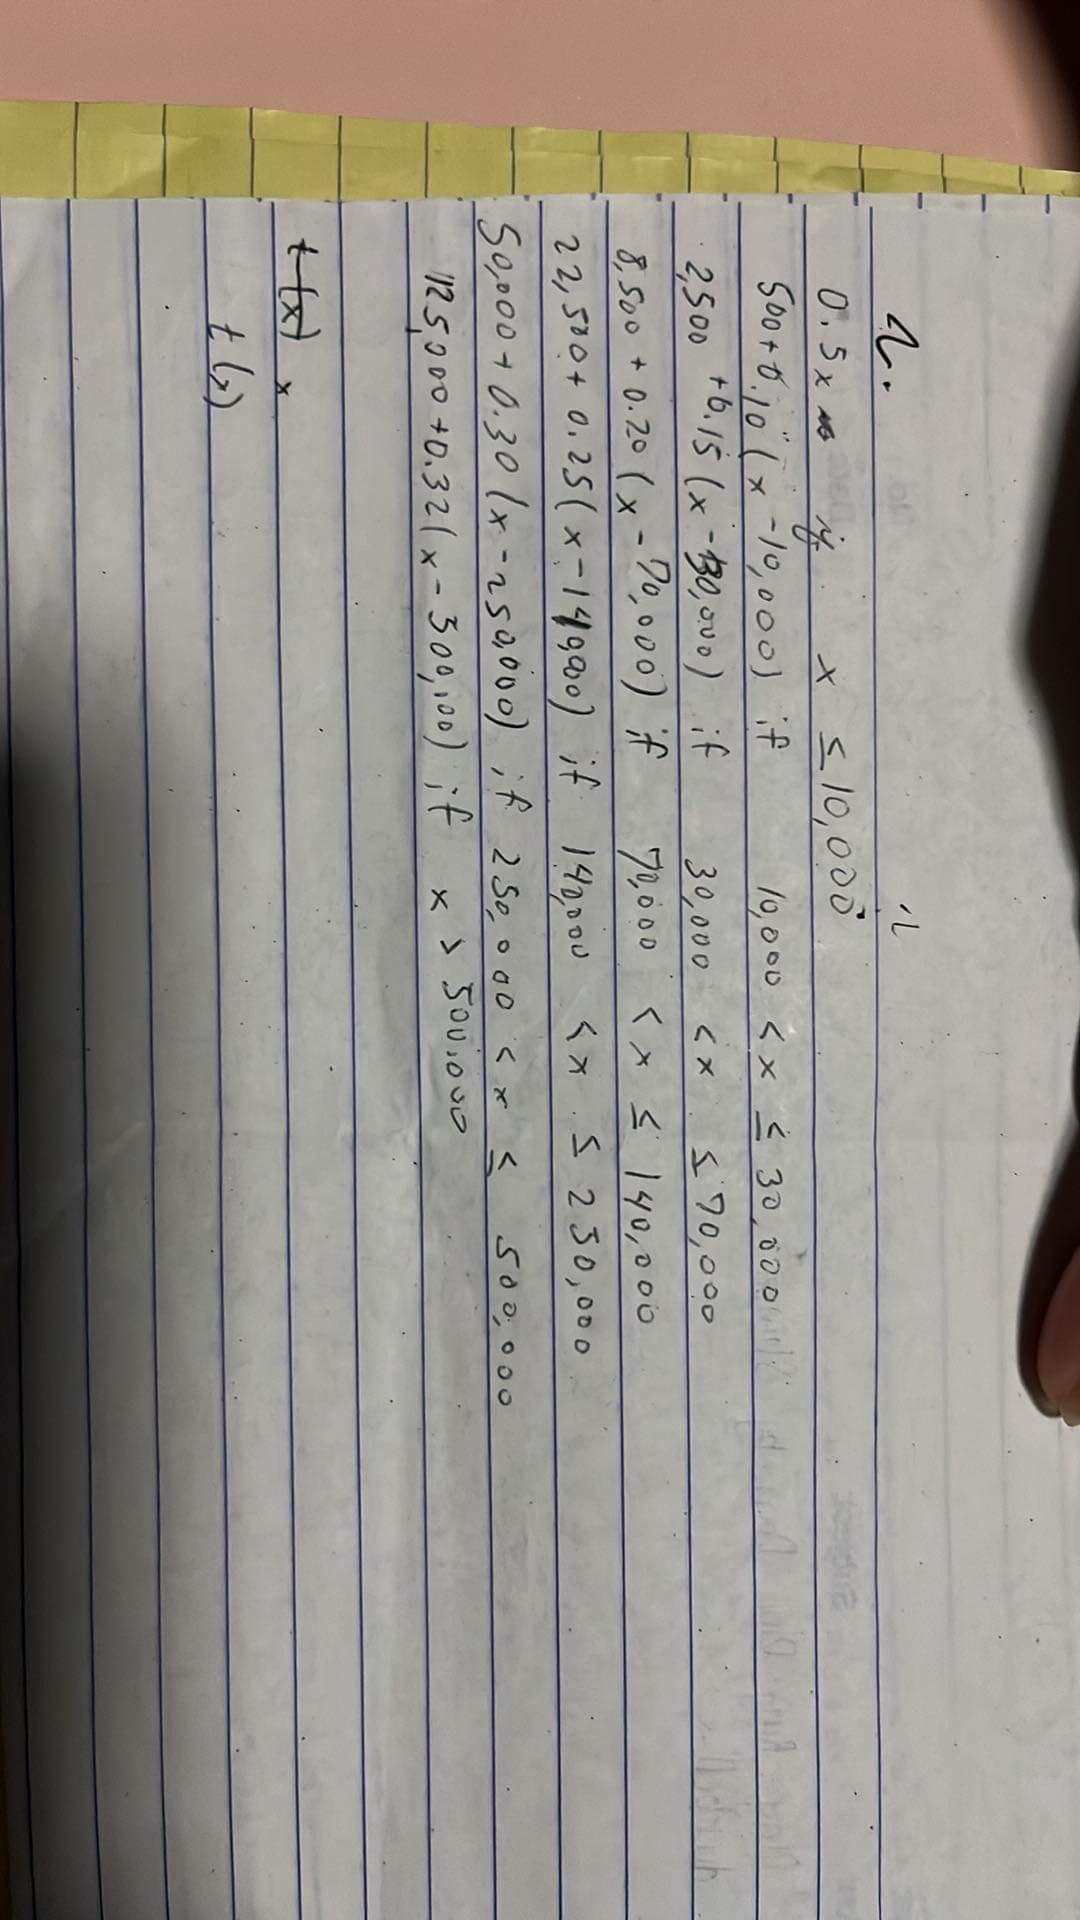 2.
0.5x if x ≤ 10,000
500 + 0.10 (x - 10,000) if 10,000 < x ≤ 30,000
2,500 + 0.15 (x - 30,000) if 30,000 < x ≤ 70,000
8,500 + 0.20 (x - 70,000) if 70,000 < x ≤ 140,000
22,500 + 0.25 (x - 140,000) if 140,000 < x ≤ 250,000
50,000 + 0.30 (x - 250,000) if 250,000 < x ≤ 500,000
125,000 + 0.32 (x - 500,000) if x > 500,000
t(x) x
t(x)